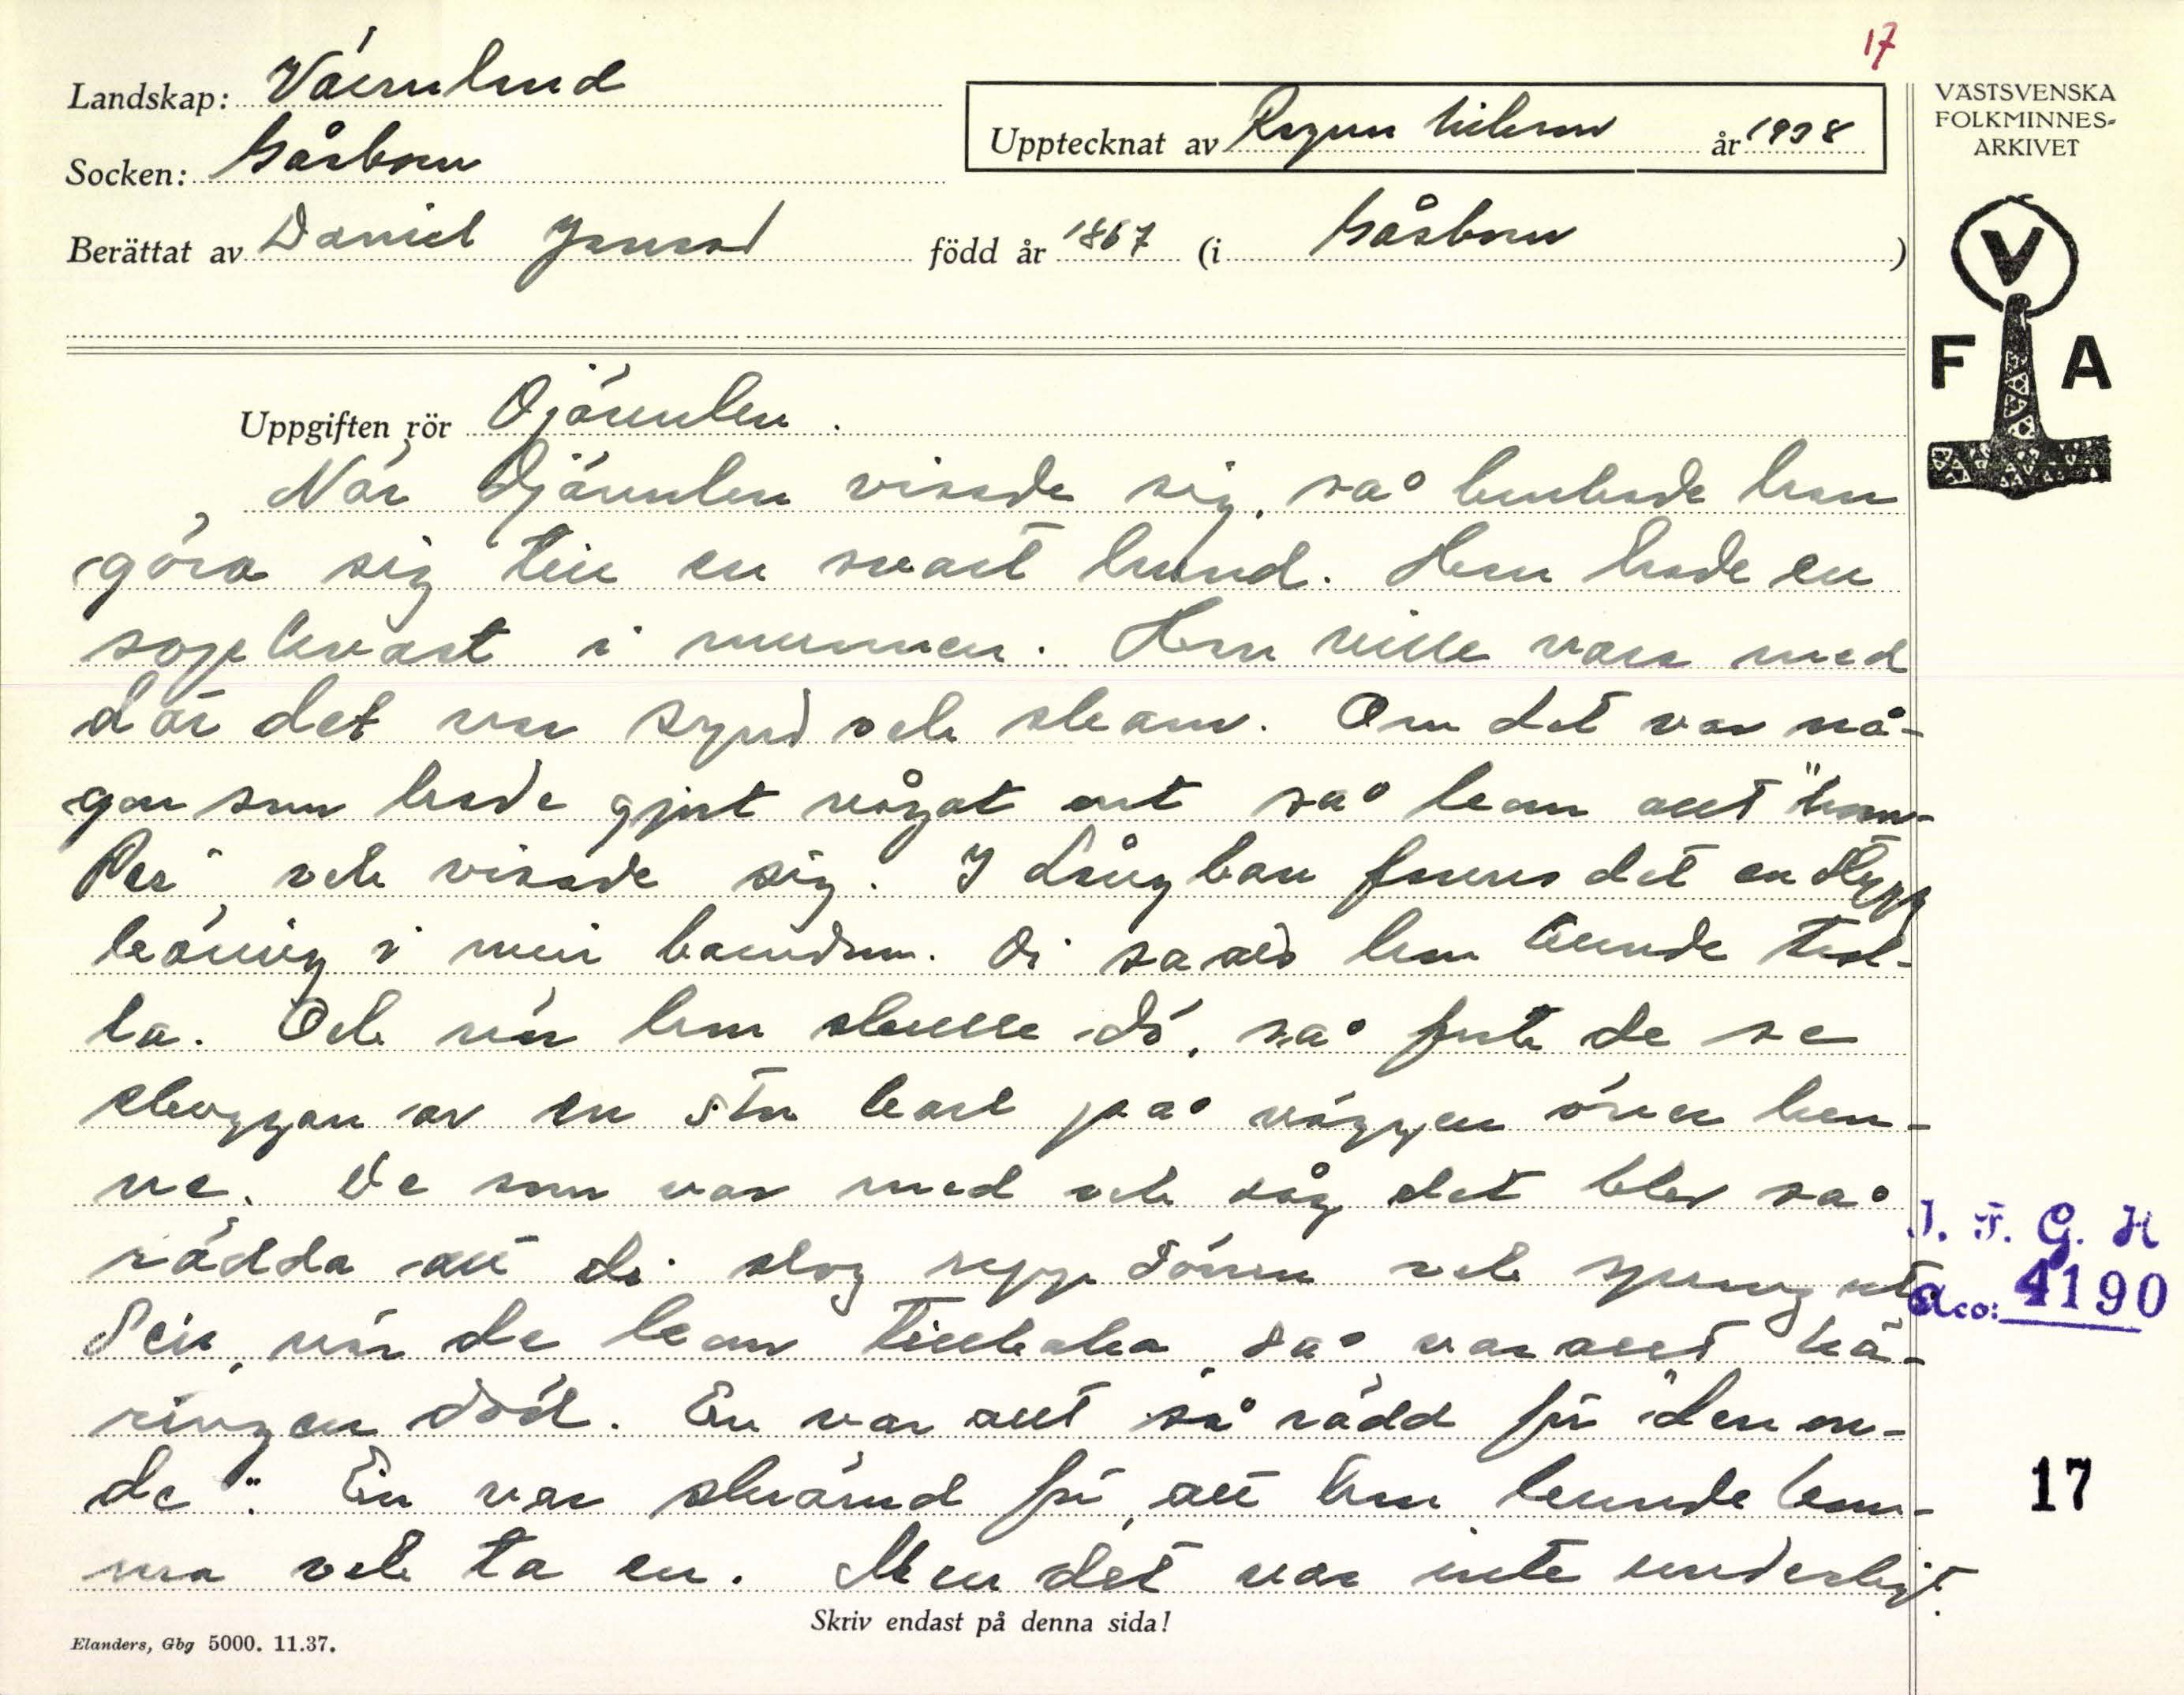 17
Landskap: Värmland
Upptecknat av Ragnar Nilsson år 1938
Socken: Gåsborn
Berättat av Daniel Jansson född år 1867 (i Gåsborn)
VÄSTSVENSKA
FOLKMINNES-
ARKIVET
V
F A
Uppgiften rör Djävulen.
När Djävulen visade sig, så brukade han
göra sig till en svart hund. Han hade en
sopkvast i munnen. Han ville vara med
där det var synd och skam. Om det var nå-
gon som hade gjort något ont så kom allt "hin-
Per" och visade sig. I Långban fanns det en
käring i min barndom. Di saas hon kunde trol-
la. Och när hon skulle dö, så fick de se
skuggan av en stor karl på väggen över hen-
ne. De som var med och såg det blev så
rädda att di slog upp dörren och sprang ut.
Sen, när de kom tillbaka, så var allt kä-
ringen död. En var allt så rädd för "den on-
de". En var skrämd för att han kunde kom-
ma och ta en. Men det var inte underligt.
I. F. G. H
Acc: 4190
17
Skriv endast på denna sida!
Elanders, Gbg 5000. 11.37.